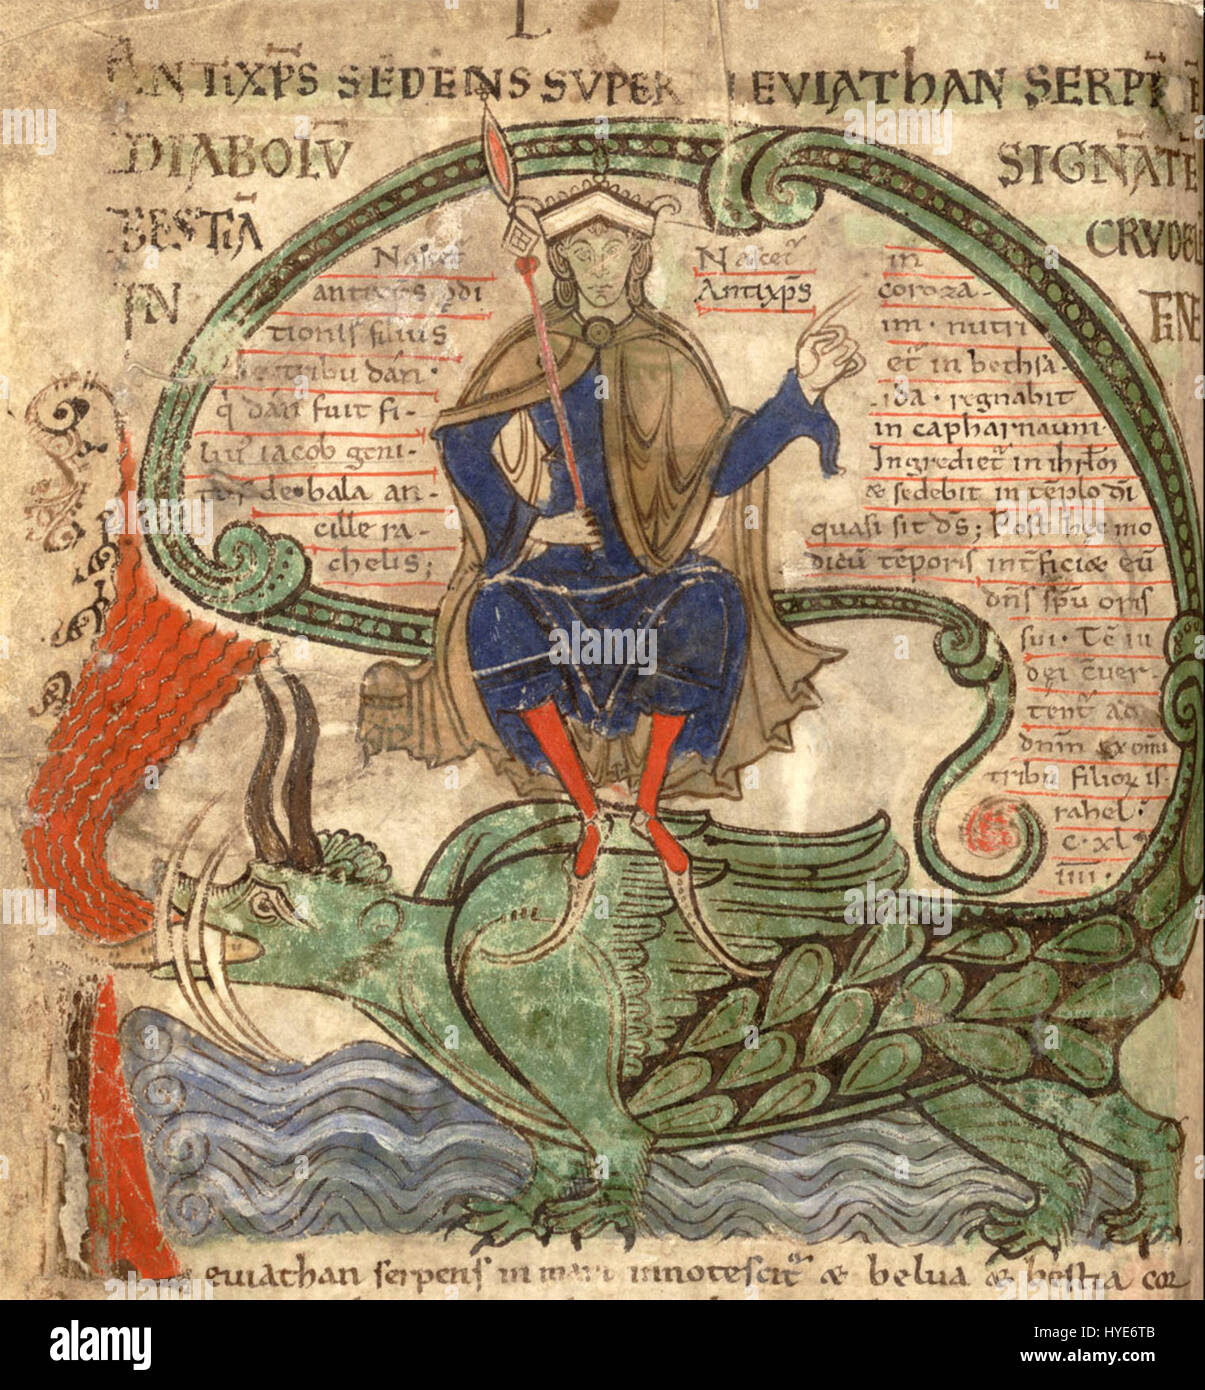 L
ANTIXP̄S SEDENS SVPER LEVIATHAN SERPĒ
DIABOLV̄ SIGNĀTĒ
BESTIĀ CRVDELĒ
IN FINE
Nascet᷒
antixp̄s pdi
tionis filius
de tribu dan·
q̇ dan fuit fi-
liuſ iacob geni-
tuſ de bala an-
cille ra-
chelis;
Nascet᷒ in
Antixp̄s coroza-
im· nutri
et᷒ in bethsa
ida· regnabit
in capharnaum·
Ingrediet᷒ in ihrl̄m
& sedebit in tēplo dī
quasi sit dſ̄; Post hec mo
dicū tēporis int̄ficiæ eū
dn̄s sp̄u oris
sui· Tc̄ iu
dei c̄uer-
tent᷒ ad
dn̄m ex omi
tribu filioꝝ is-
rahel·
c· xl
iiii·
euiathan serpens in mari innotescit᷒ & belua & bestia cor
alamy
Image ID: HYE6TB
www.alamy.com